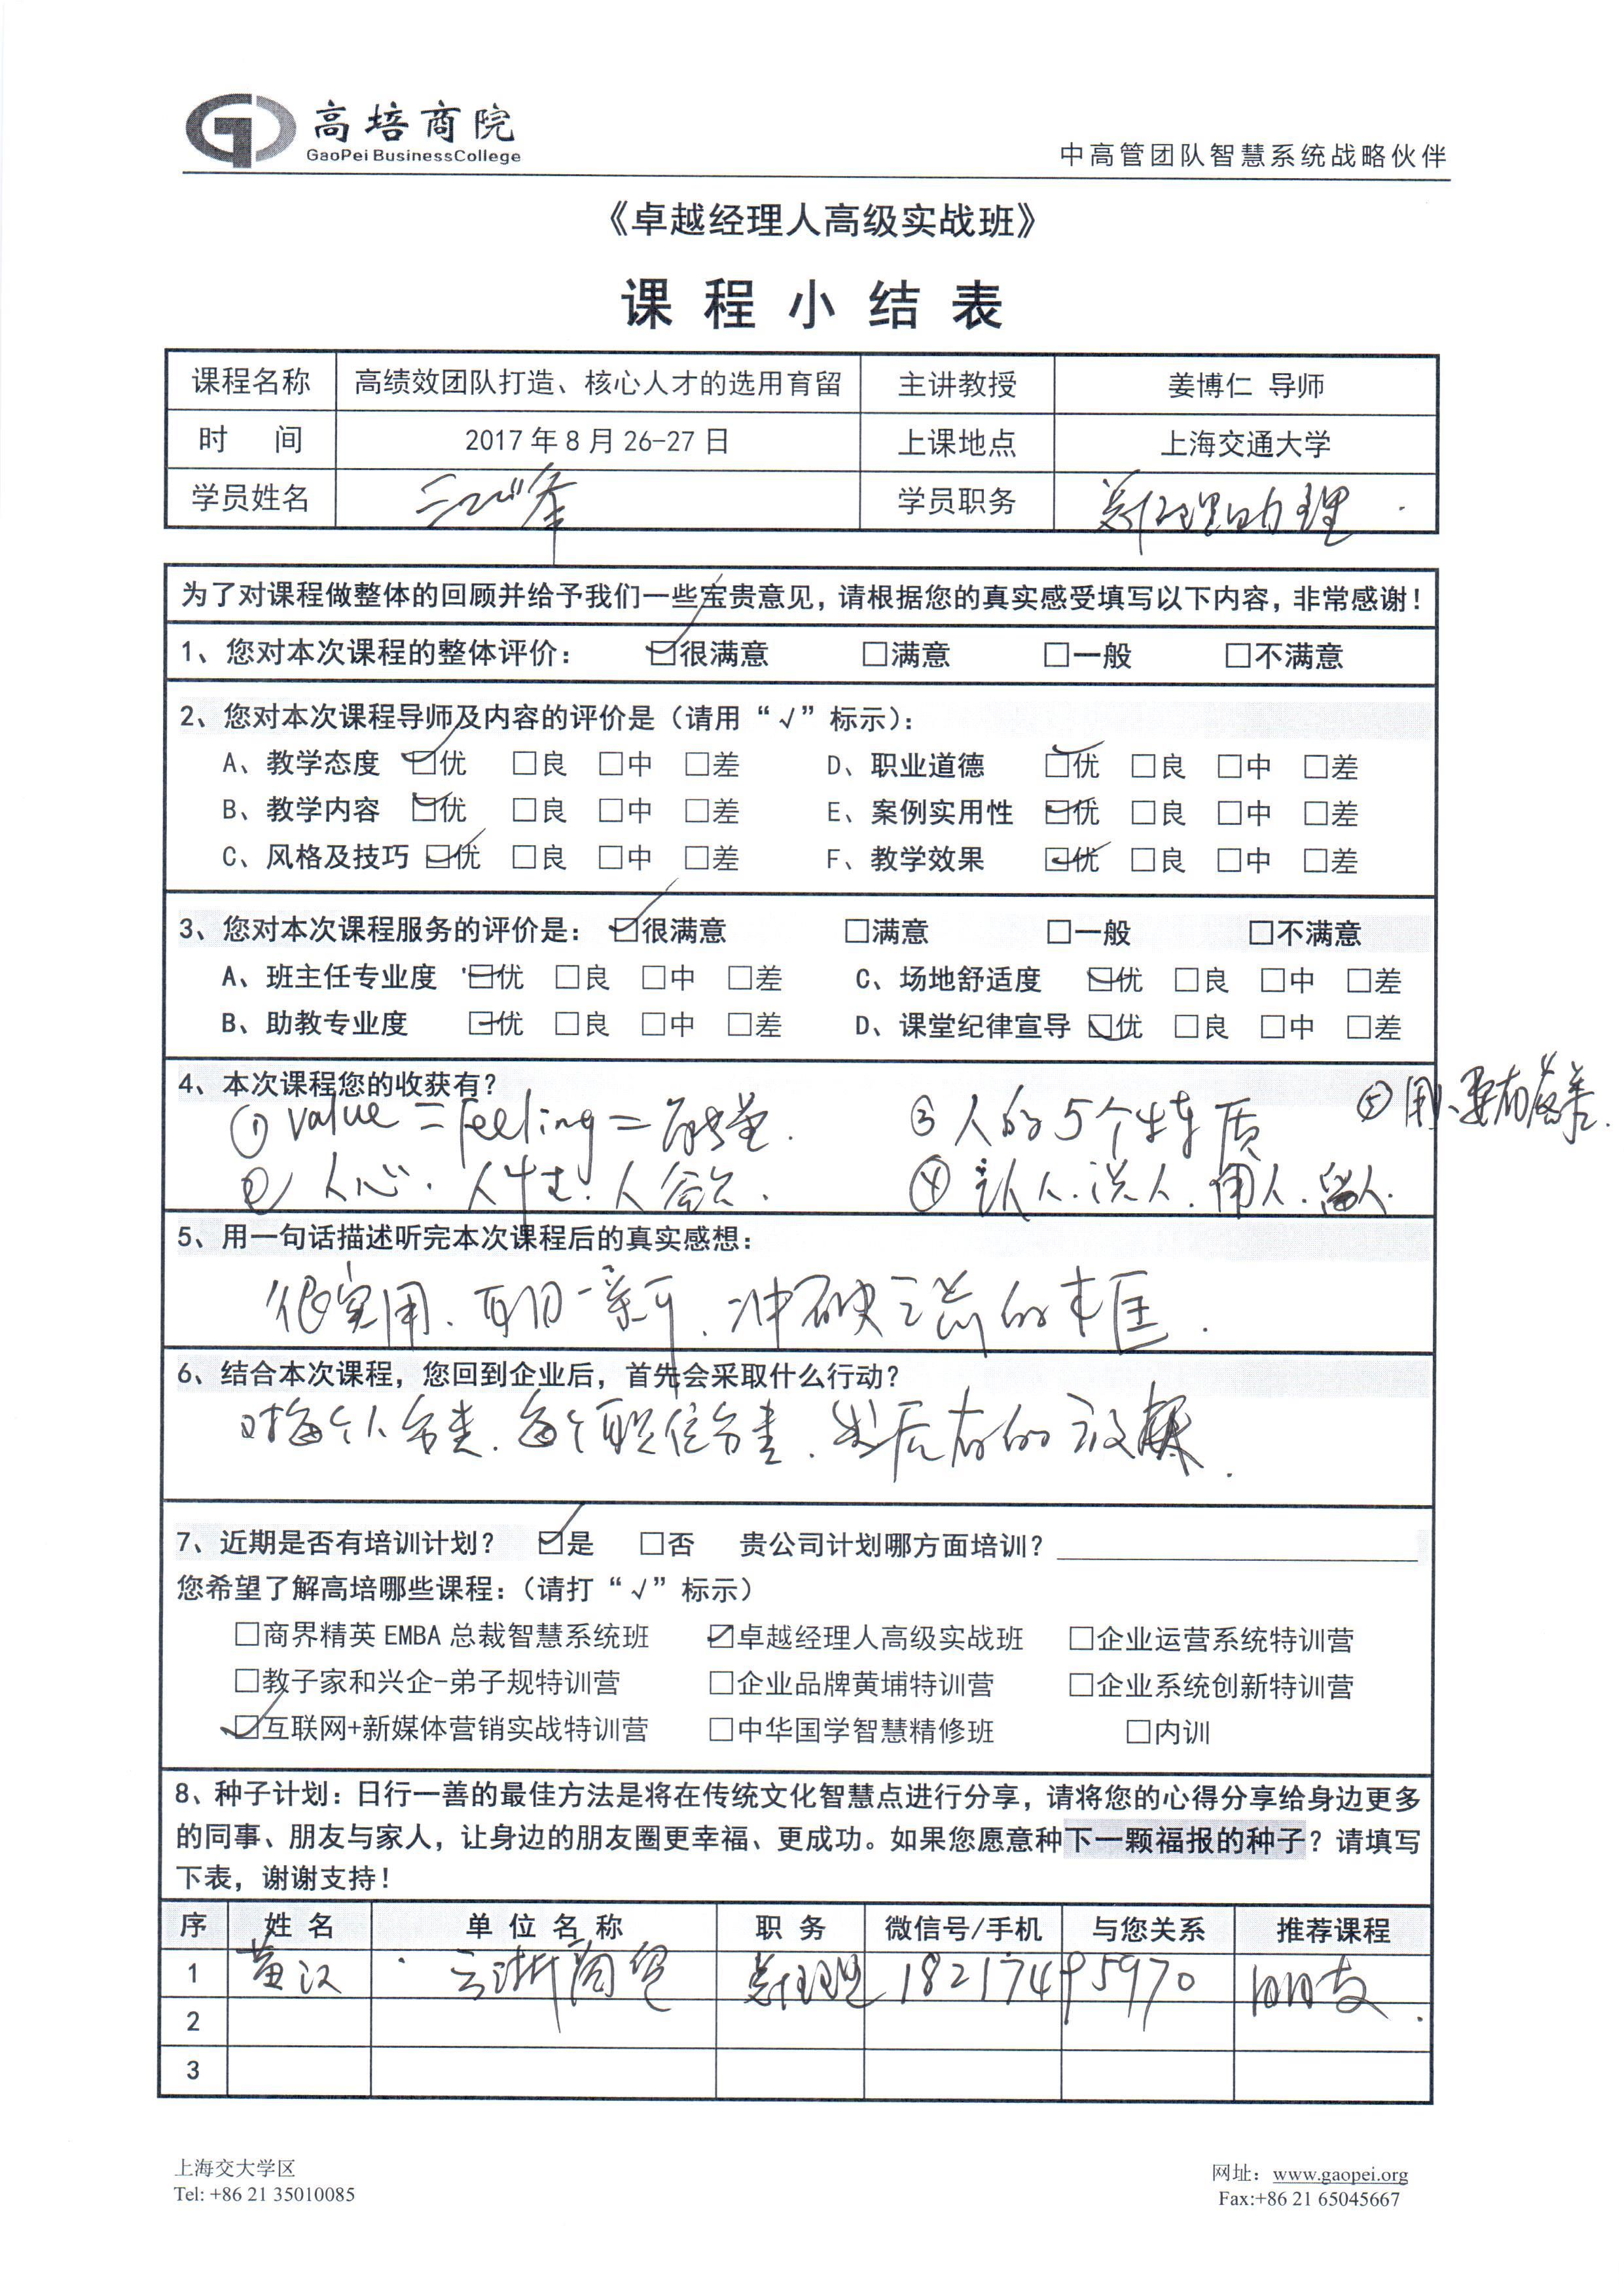 高培商院
GaoPei BusinessCollege
中高管团队智慧系统战略伙伴
《卓越经理人高级实战班》
课程小结表
课程名称 高绩效团队打造、核心人才的选用育留 主讲教授 姜博仁 导师
时 间 2017年8月26-27日 上课地点 上海交通大学
学员姓名 学员职务 总经理助理
为了对课程做整体的回顾并给予我们一些宝贵意见，请根据您的真实感受填写以下内容，非常感谢！
1、您对本次课程的整体评价： ☑很满意 □满意 □一般 □不满意
2、您对本次课程导师及内容的评价是（请用“√”标示）：
A、教学态度 ☑优 □良 □中 □差 D、职业道德 ☑优 □良 □中 □差
B、教学内容 ☑优 □良 □中 □差 E、案例实用性 ☑优 □良 □中 □差
C、风格及技巧 ☑优 □良 □中 □差 F、教学效果 ☑优 □良 □中 □差
3、您对本次课程服务的评价是： ☑很满意 □满意 □一般 □不满意
A、班主任专业度 ☑优 □良 □中 □差 C、场地舒适度 ☑优 □良 □中 □差
B、助教专业度 ☑优 □良 □中 □差 D、课堂纪律宣导 ☑优 □良 □中 □差
4、本次课程您的收获有？
① value = Feeling = 能量. ③ 人的5个特质 ⑤ 用人要有落差.
② 人心. 人性. 人欲. ④ 识人.选人.用人.留人.
5、用一句话描述听完本次课程后的真实感想：
很实用.耳目一新.冲破之前的卡框.
6、结合本次课程，您回到企业后，首先会采取什么行动？
对每个人分类.每个职位分类.
7、近期是否有培训计划？ ☑是 □否 贵公司计划哪方面培训？
您希望了解高培哪些课程：（请打“√”标示）
□商界精英EMBA总裁智慧系统班 ☑卓越经理人高级实战班 □企业运营系统特训营
□教子家和兴企-弟子规特训营 □企业品牌黄埔特训营 □企业系统创新特训营
☑互联网+新媒体营销实战特训营 □中华国学智慧精修班 □内训
8、种子计划：日行一善的最佳方法是将在传统文化智慧点进行分享，请将您的心得分享给身边更多
的同事、朋友与家人，让身边的朋友圈更幸福、更成功。如果您愿意种下一颗福报的种子？请填写
下表，谢谢支持！
序 姓 名 单 位 名 称 职 务 微信号/手机 与您关系 推荐课程
1 黄汉 云浙商贸 总经理 18217495970 朋友.
2
3
上海交大学区
网址：www.gaopei.org
Tel: +86 21 35010085
Fax:+86 21 65045667